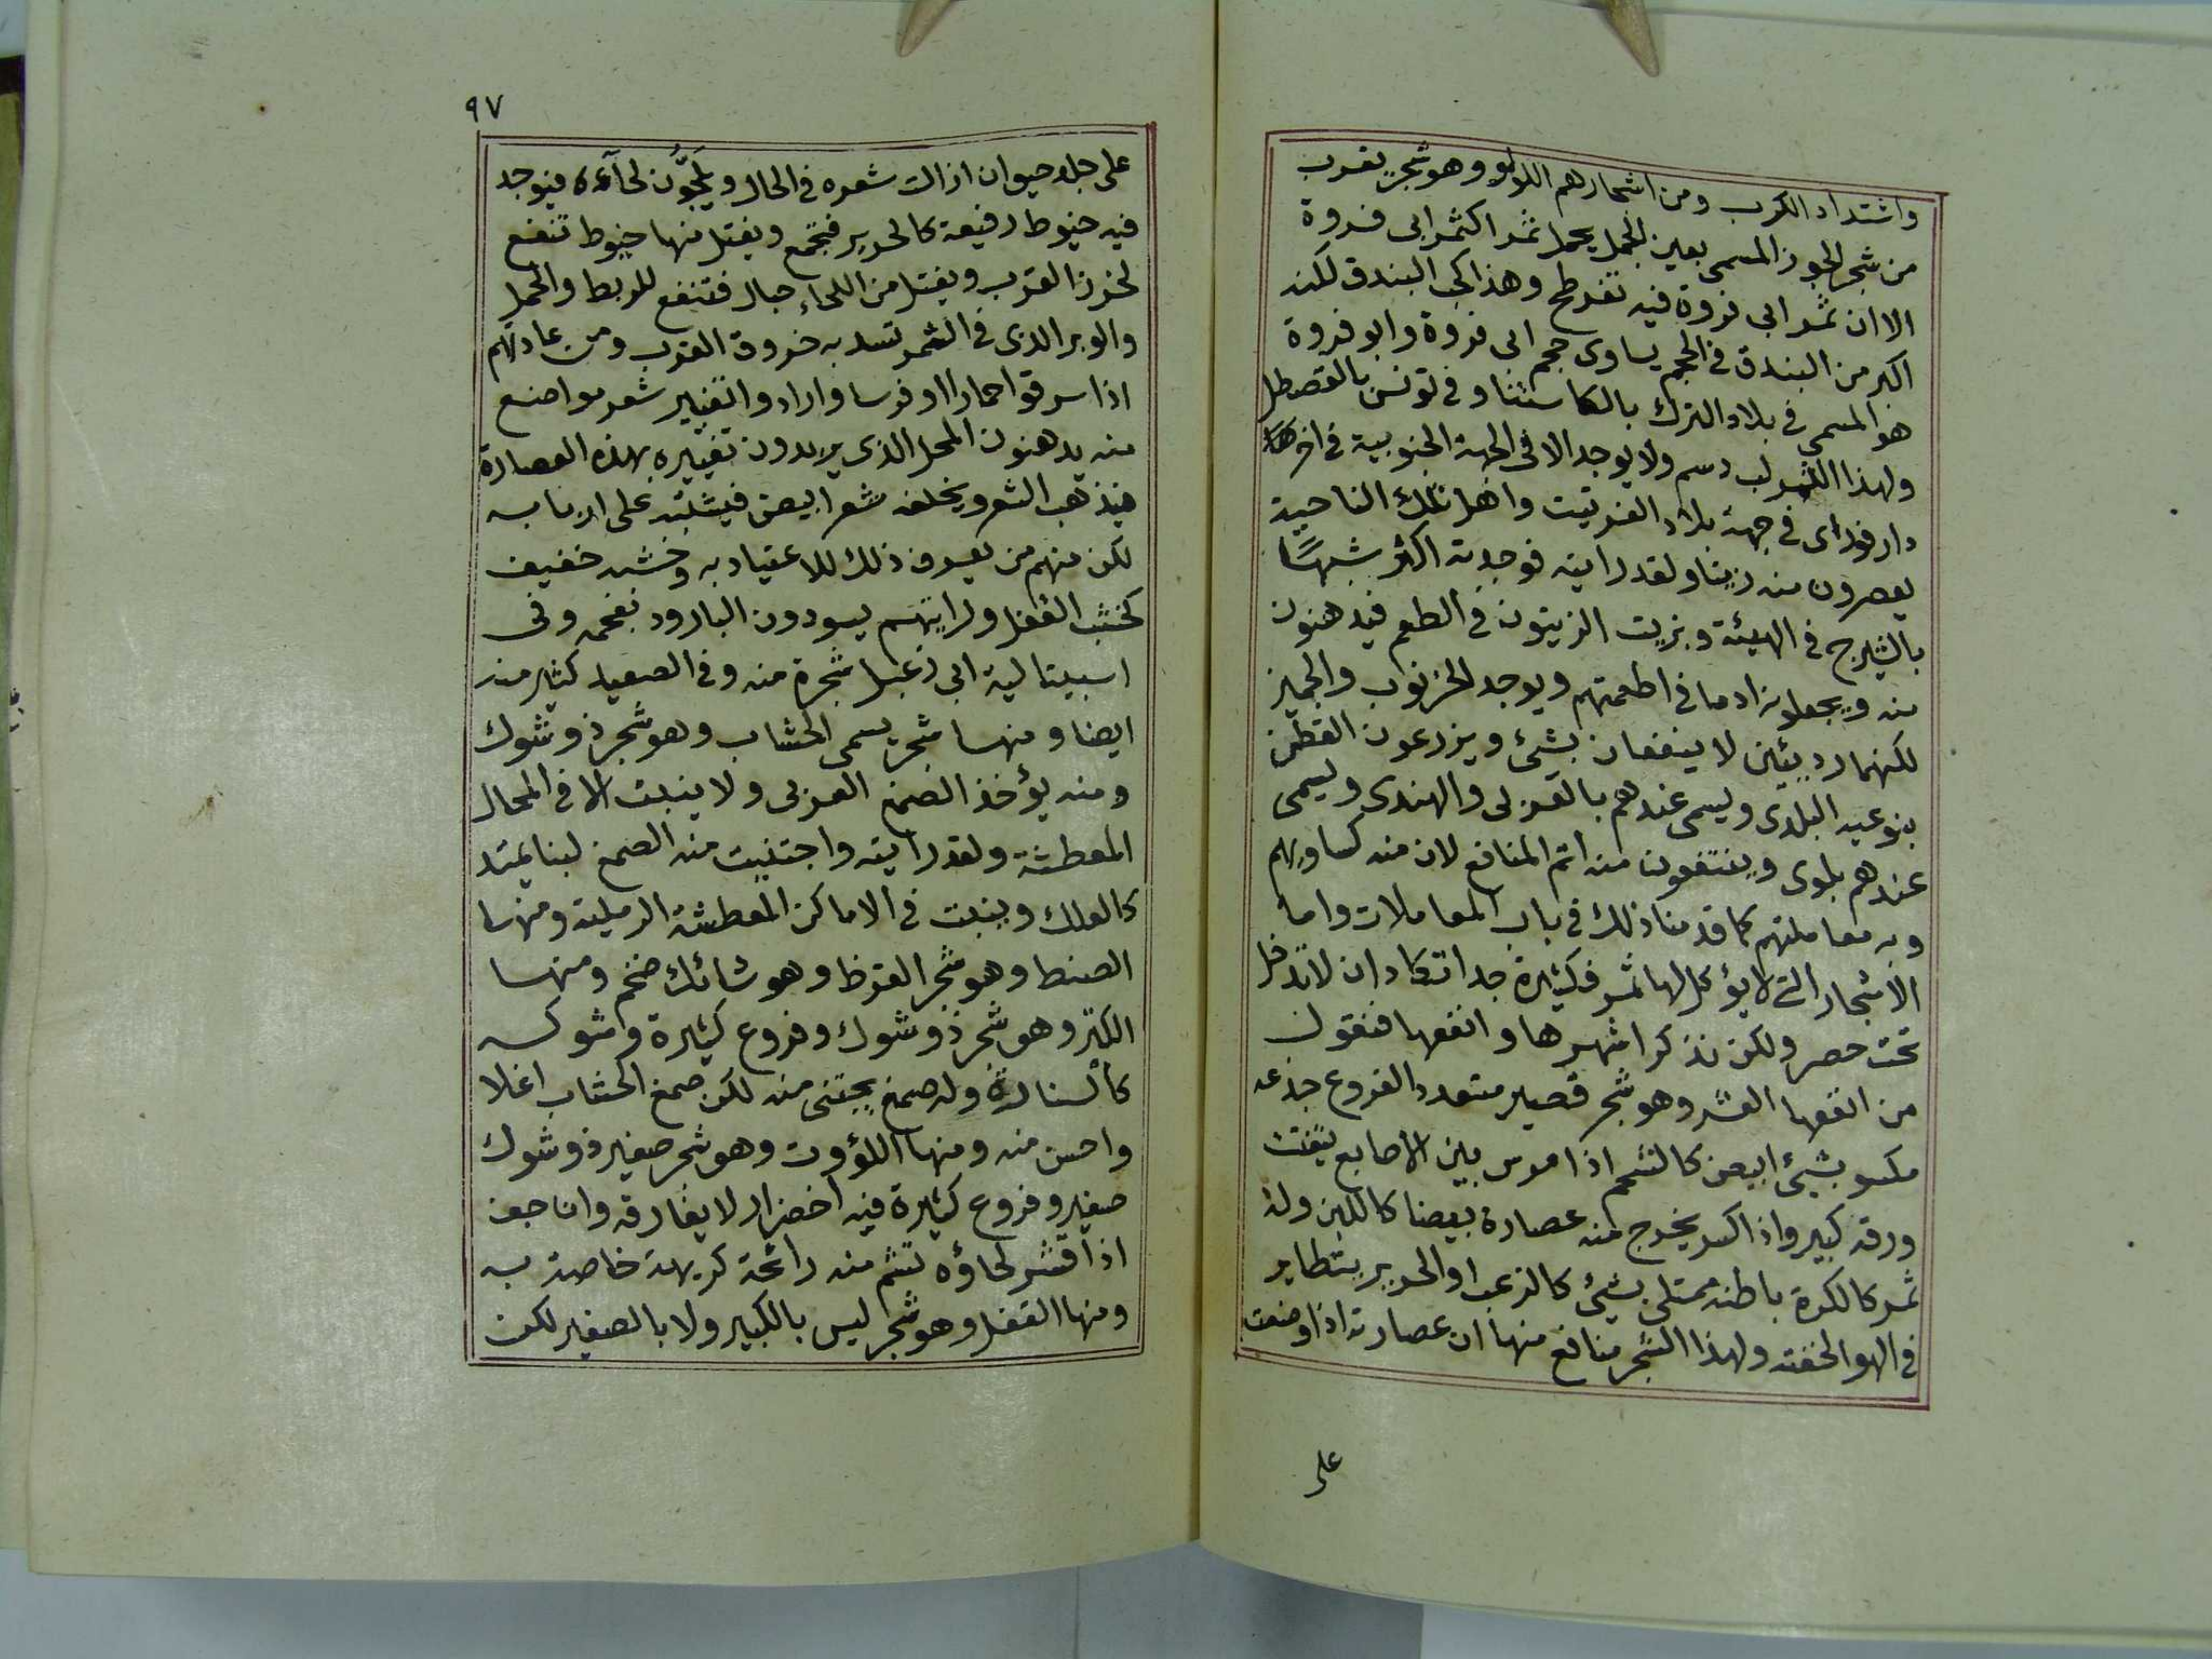 واشتداد الكرب ومن اشجارهم اللولو وهو شجر يقرب
من شجر الجوز المسمى بعين الجمل يحمل ثمرا كثمر ابى فروة
الا ان ثمر ابى فروة فيه تفرطح وهذا كحب البندق لكنه
اكبر من البندق فى الحجم يساوى حجم ابى فروة وابو فروة
هو المسمى فى بلاد الترك بالكاستنا وفى تونس بالقصطل
ولهذا الثمر لب دسم ولا يوجد الا فى الجهة الجنوبية فى اخر
دارفور اى فى جهة بلاد الفرتيت واهل تلك الناحية
يعصرون منه زيتا ولقد رايته فوجدته اكثر شبها
بالشيرج فى الهيئة وبزيت الزيتون فى الطعم فيدهنون
منه ويجعلونه ادما فى اطعمتهم ويوجد الخرنوب والجميز
لكنهما رديئين لا ينفعان بشئ ويزرعون القطن
بنوعيه البلدى ويسمى عندهم بالقزلى والهندى ويسمى
عندهم بلوى وينتفعون منه اتم المنافع لان منه كساويهم
وبه معاملتهم كما قدمنا ذلك فى باب المعاملات واما
الاشجار التى لا يؤكل لها ثمر فكثيرة جدا تكاد ان لا تدخل
تحت حصر ولكن نذكر اشهرها وانفعها فنقول
من انفعها العشر وهو شجر قصير متعدد الفروع جذعه
مكسو بشئ ابيض كالشحم اذا مرس بين الاصابع يتفتت
ورقه كبير واذا كسر يخرج منه عصارة بيضا كاللبن وله
ثمر كالكرة باطنه ممتلى بشئ كالزغب او الحرير يتطاير
فى الهوا لخفته ولهذا الشجر منافع منها ان عصارته اذا وضعت
على
٩٧
على جلد حيوان ازالت شعره فى الحال ويلجّون لحآءه فيوجد
فيه خيوط رفيعة كالحرير فتجمع ويفتل منها خيوط تنفع
لخرز القرب ويفتل من اللحاء حبال فتنفع للربط والحمل
والوبر الذى فى الثمر تسد به خروق القرب ومن عادتهم
اذا سرقوا حمارا او فرسا وارادوا تغيير شعر مواضع
منه يدهنون المحل الذى يريدون تغييره بهذه العصارة
فيذهب الشعر ويخلفه شعر ابيض فيشتبه على اربابه
لكن منهم من يعرف ذلك للاعتياد به وخشبه خفيف
كخشب القفل ورايتهم يسودون البارود بفحمه وفى
اسبيتالية ابى زعبل شجرة منه وفى الصعيد كثير منه
ايضا ومنها شجر يسمى الحشاب وهو شجر ذو شوك
ومنه يؤخذ الصمغ العربى ولا ينبت الا فى المحال
المعطشة ولقد رايته واجتنيت منه الصمغ لينا يمتد
كالعلك وينبت فى الاماكن المعطشة الرملية ومنها
الصنط وهو شجر القرظ وهو شائك ضخم ومنها
الكتر وهو شجر ذو شوك وفروع كثيرة وشوكه
كالسنارة وله صمغ يجتنى منه لكن صمغ الحشاب اغلا
واحسن منه ومنها اللؤوت وهو شجر صغير ذو شوك
صغير وفروع كثيرة فيه اخضرار لا يفارقه وان جف
اذا قشر لحاؤه تشم منه رائحة كريهة خاصة به
ومنها القفل وهو شجر ليس بالكبير ولا بالصغير لكن